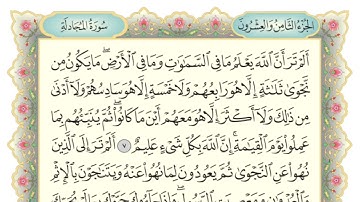 الجزء الثامن والعشرون
سورة المجادلة
أَلَمْ تَرَ أَنَّ ٱللَّهَ يَعْلَمُ مَا فِى ٱلسَّمَٰوَٰتِ وَمَا فِى ٱلْأَرْضِ ۖ مَا يَكُونُ مِن
نَّجْوَىٰ ثَلَٰثَةٍ إِلَّا هُوَ رَابِعُهُمْ وَلَا خَمْسَةٍ إِلَّا هُوَ سَادِسُهُمْ وَلَآ أَدْنَىٰ
مِن ذَٰلِكَ وَلَآ أَكْثَرَ إِلَّا هُوَ مَعَهُمْ أَيْنَ مَا كَانُوا۟ ۖ ثُمَّ يُنَبِّئُهُم بِمَا
عَمِلُوا۟ يَوْمَ ٱلْقِيَٰمَةِ ۚ إِنَّ ٱللَّهَ بِكُلِّ شَىْءٍ عَلِيمٌ ٧ أَلَمْ تَرَ إِلَى ٱلَّذِينَ
نُهُوا۟ عَنِ ٱلنَّجْوَىٰ ثُمَّ يَعُودُونَ لِمَا نُهُوا۟ عَنْهُ وَيَتَنَٰجَوْنَ بِٱلْإِثْمِ